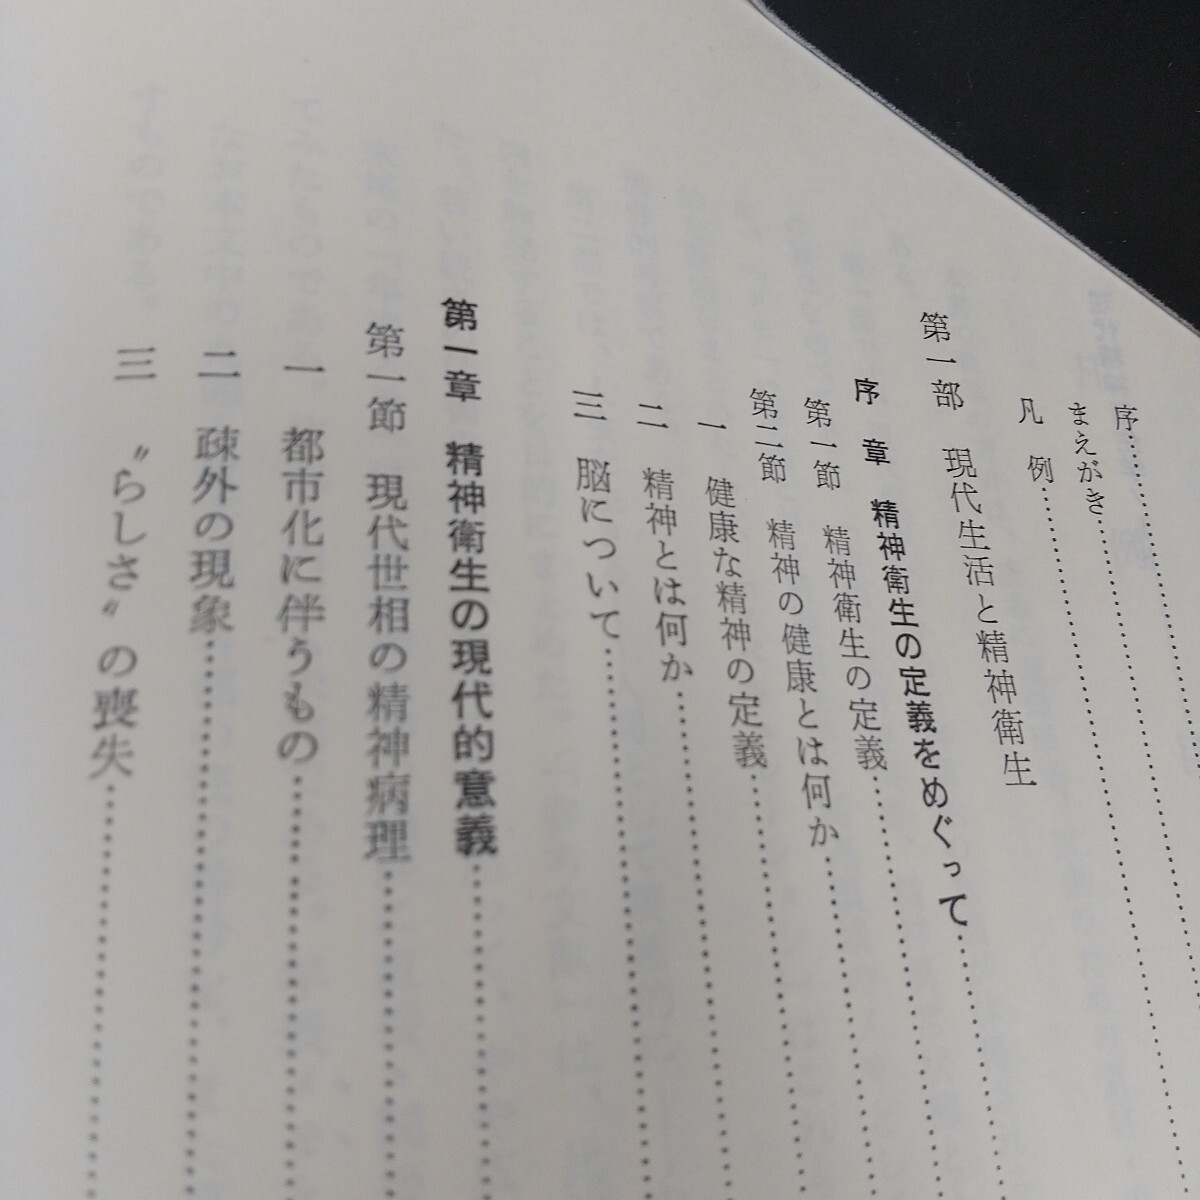 序
まえがき
凡例
第一部 現代生活と精神衛生
序章 精神衛生の定義をめぐって
第一節 精神衛生の定義
第二節 精神の健康とは何か
一 健康な精神の定義
二 精神とは何か
三 脳について
第一章 精神衛生の現代的意義
第一節 現代世相の精神病理
一 都市化に伴うもの
二 疎外の現象
三 〝らしさ〟の喪失